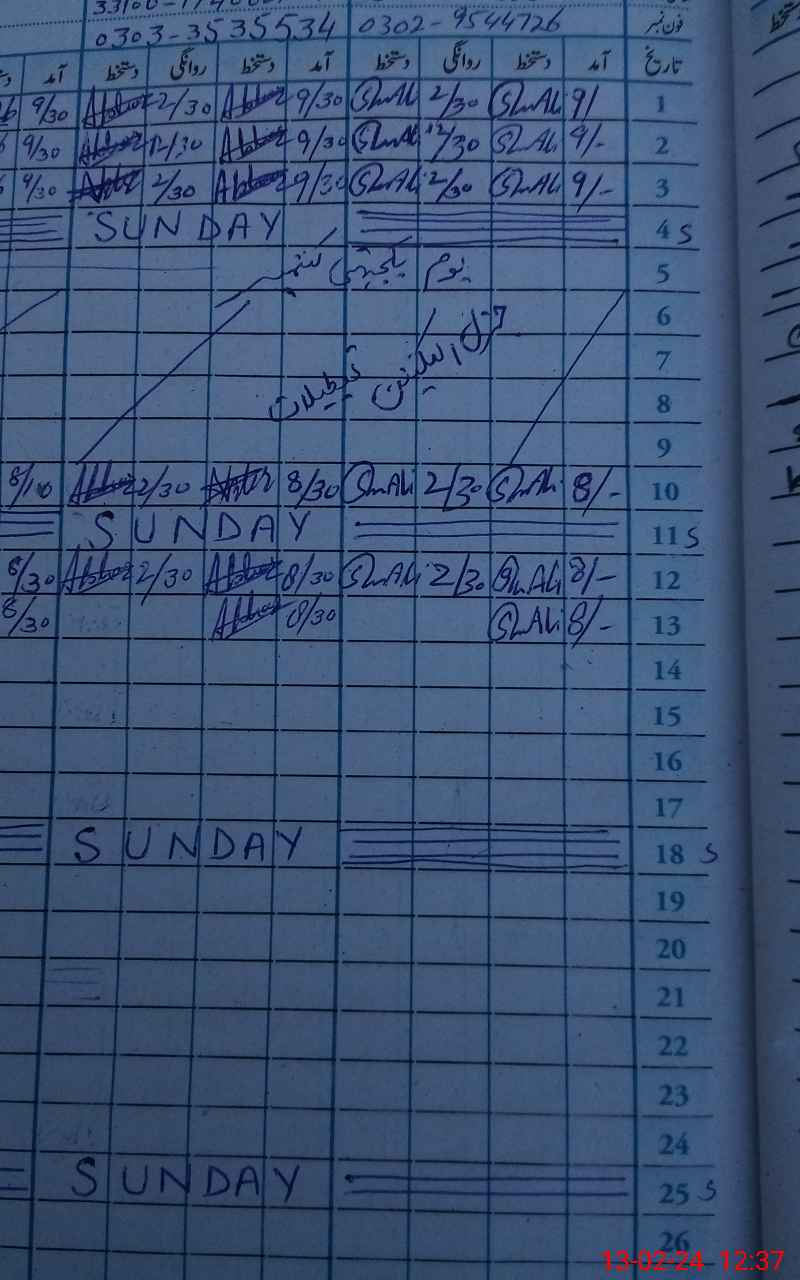 0303-3535534 0302-9544726 فون نمبر
آمد دستخط روانگی دستخط آمد دستخط روانگی دستخط آمد تاریخ
9/30 2/30 9/30 ShAli 2/30 ShAli 9/ 1
9/30 12/30 9/30 ShAli 12/30 ShAli 9/- 2
9/30 2/30 9/30 ShAli 2/30 ShAli 9/- 3
SUNDAY 4 S
یوم یکجہتی کشمیر 5
6
جنرل الیکشن تعطیلات 7
8
9
2/30 8/30 ShAli 2/30 ShAli 8/- 10
SUNDAY 11 S
8/30 2/30 8/30 ShAli 2/30 ShAli 8/- 12
8/30 8/30 ShAli 8/- 13
14
15
16
17
SUNDAY 18 S
19
20
21
22
23
24
SUNDAY 25 S
26
13-02-24 12:37